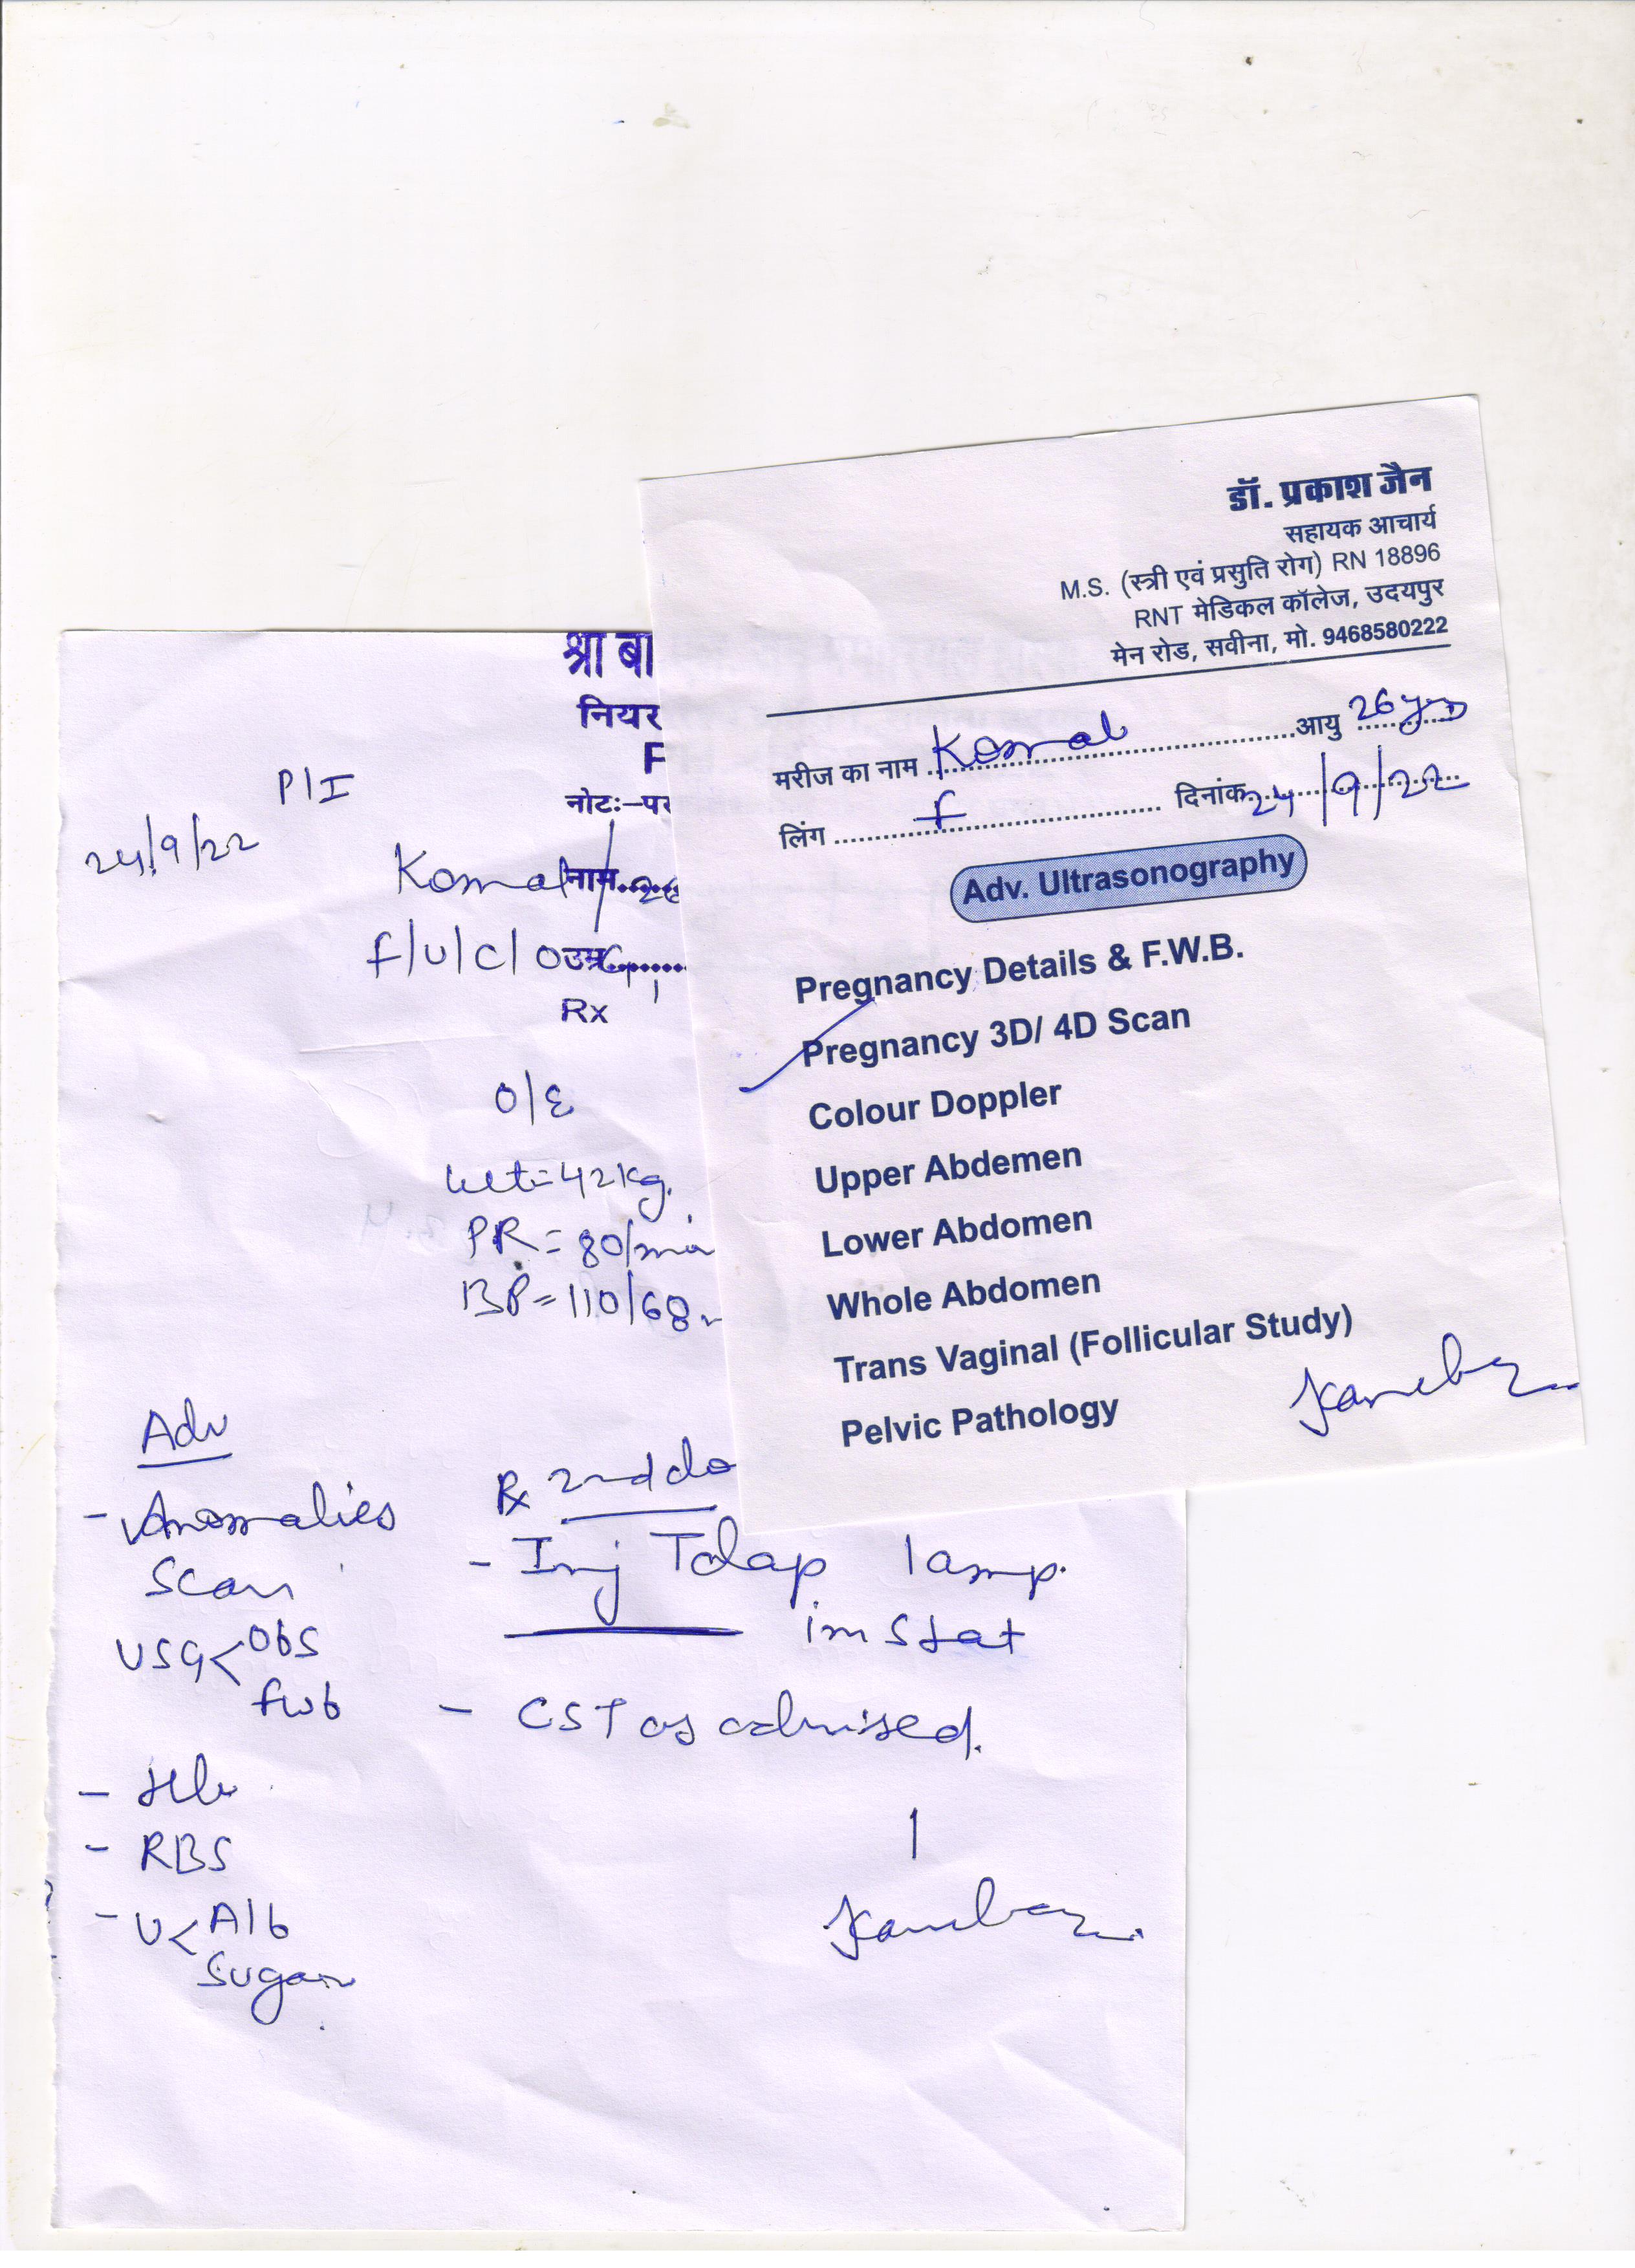 श्री बा
नियर
F
नोटः–पर
P/I
24/9/22
Komal नाम...... / 26
F/U/C/O उम्र........
Rx
O/E
wt = 42 kg.
PR = 80/min
BP = 110/68
Adv
- Anomalies
Scan
USG < Obs
fwb
- Hb
- RBS
- U < Alb
Sugar
Rx 2nd do
- Inj Tdap 1 amp.
im stat
- CST as advised.
डॉ. प्रकाश जैन
सहायक आचार्य
M.S. (स्त्री एवं प्रसुति रोग) RN 18896
RNT मेडिकल कॉलेज, उदयपुर
मेन रोड, सवीना, मो. 9468580222
मरीज का नाम Komal आयु 26 yrs
लिंग F दिनांक 24/9/22
Adv. Ultrasonography
Pregnancy Details & F.W.B.
Pregnancy 3D/ 4D Scan
Colour Doppler
Upper Abdemen
Lower Abdomen
Whole Abdomen
Trans Vaginal (Follicular Study)
Pelvic Pathology